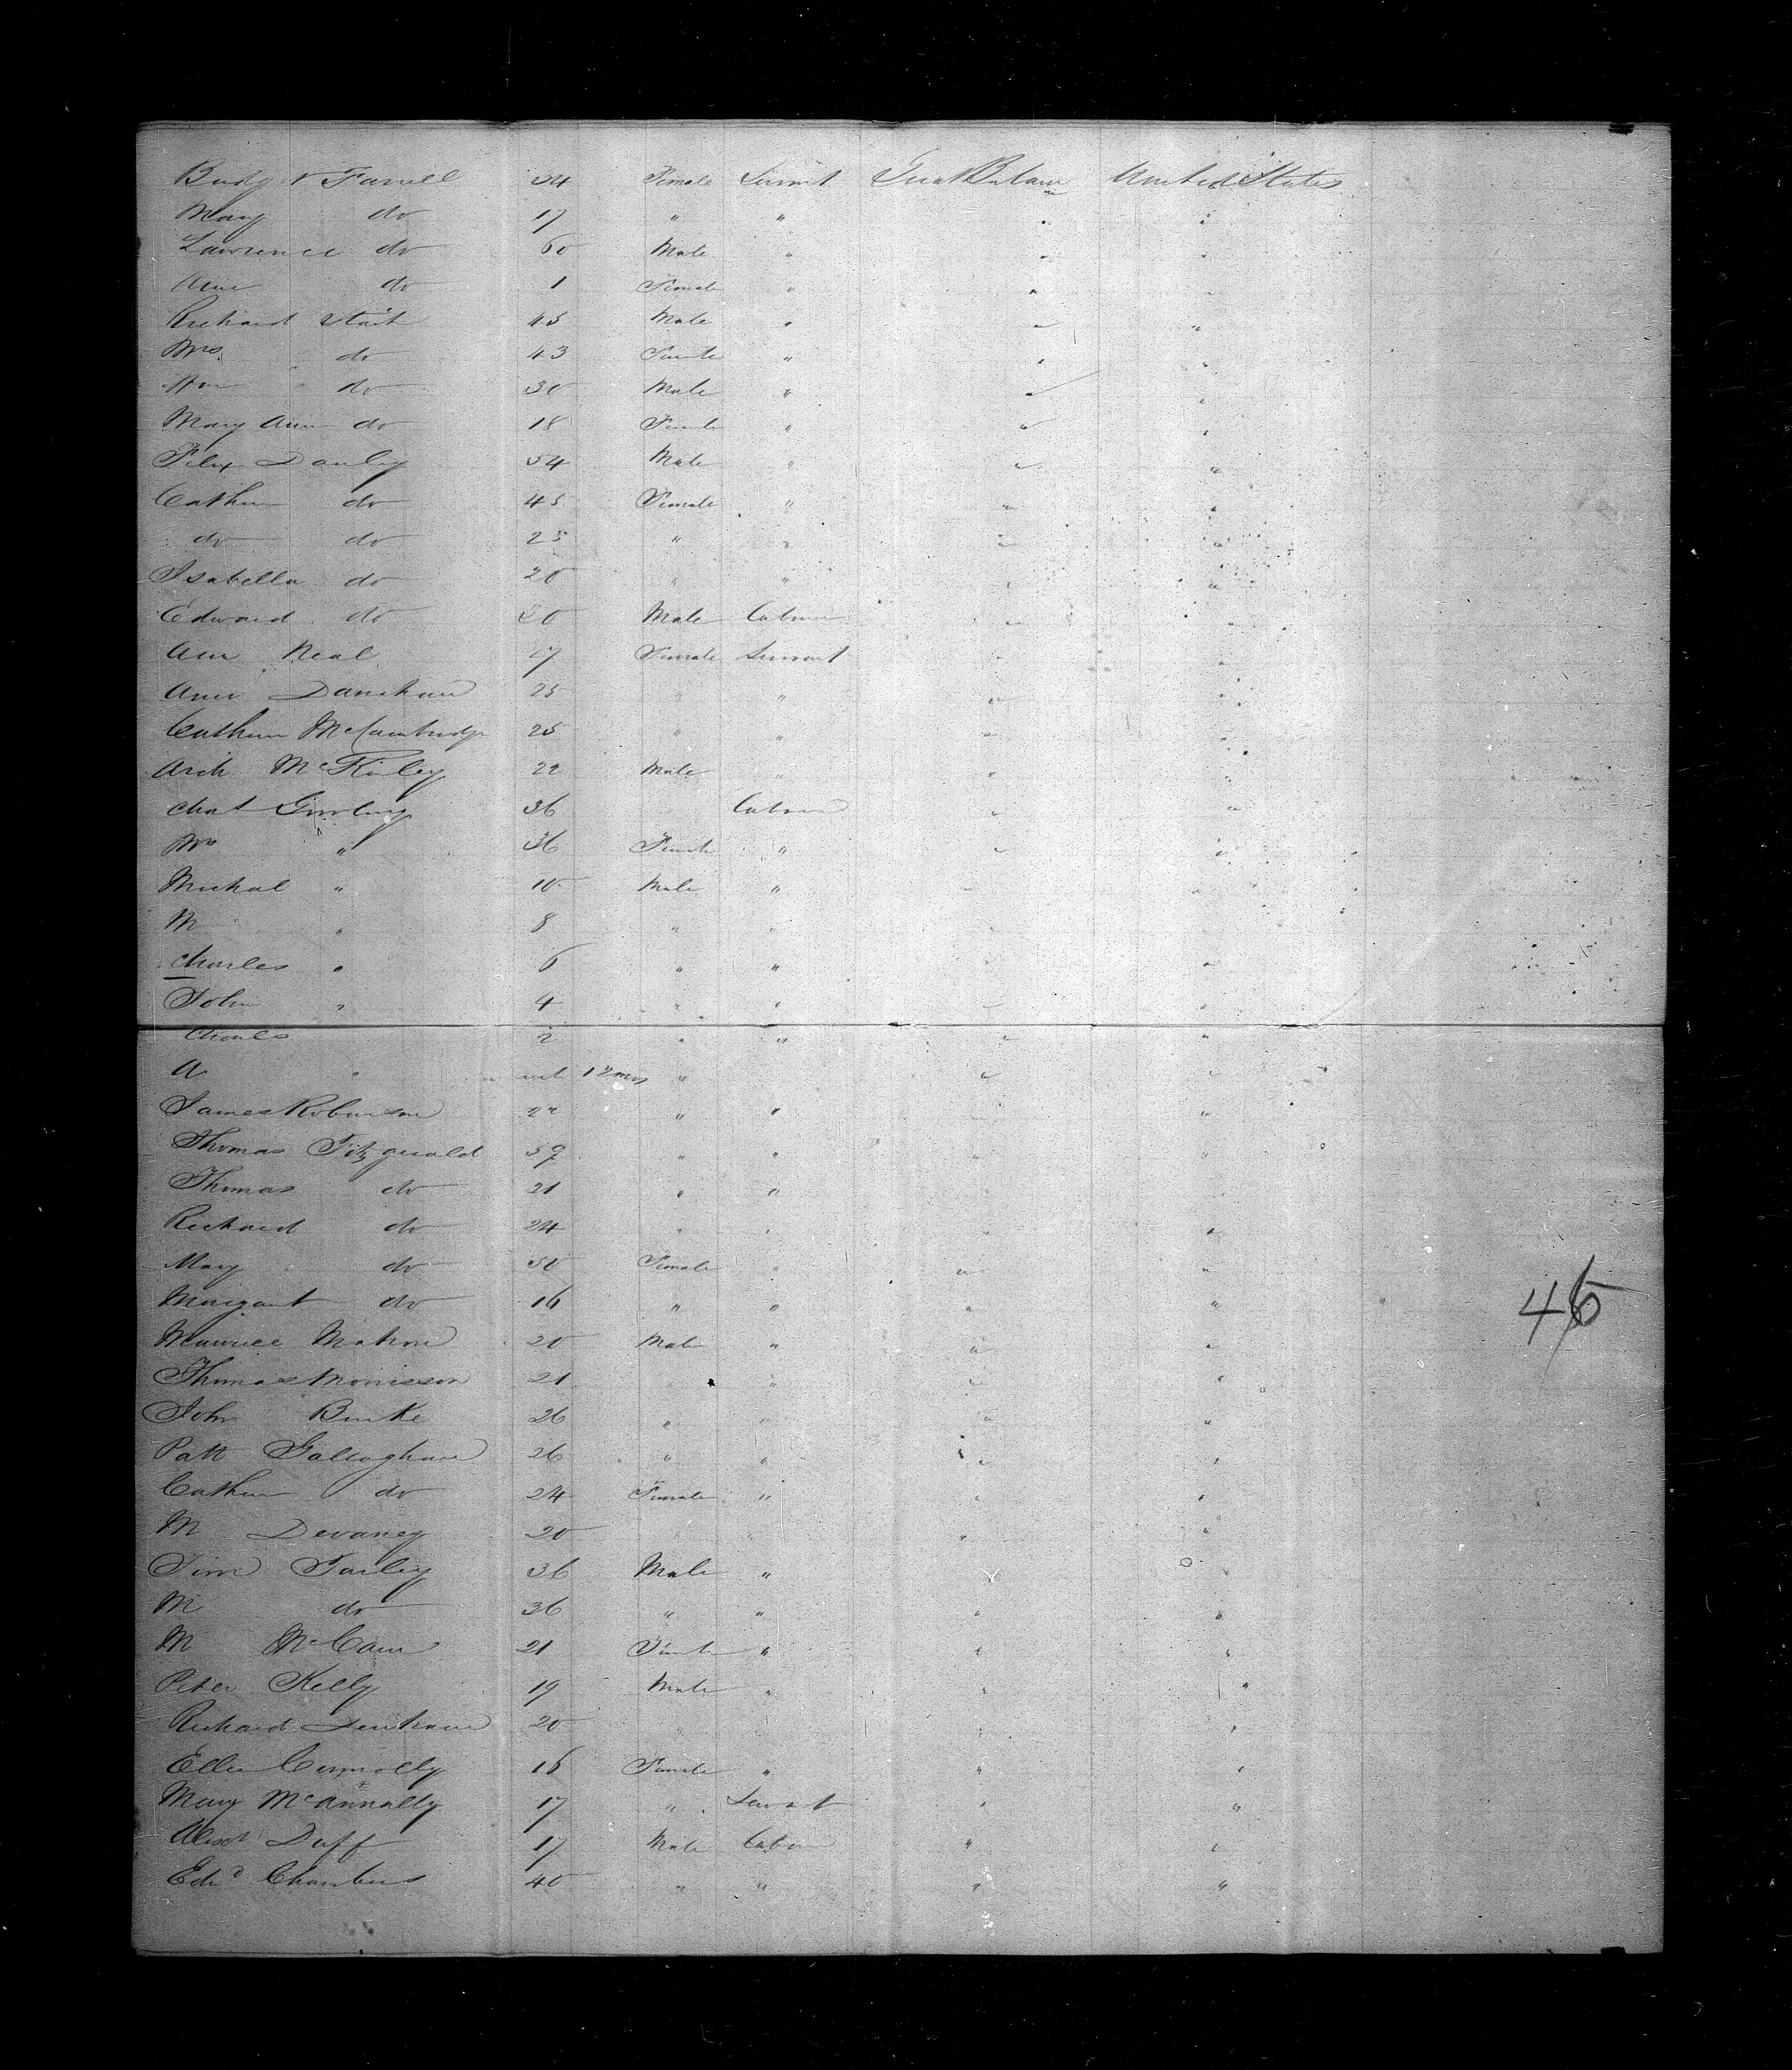 Bridgt Farrell 34 Female Servant Great Britain United States
Mary do 17 " " " "
Lawrence do 60 Male " " "
Ann do 1 Female " " "
Richard 45 Male " " "
Mrs do 43 Female " " "
do 30 Male " " "
Mary Ann do 18 Female " " "
Felix Danly 54 Male " " "
Cathrn do 45 Female " " "
do do 25 " " " "
Isabella do 20 " " " "
Edward do 30 Male Labour " "
Ann Neal 17 Female Servant " "
Ann 25 " " " "
Cathern McCambridge 25 " " " "
Arch McKinley 22 Male " " "
36 Labour " "
Mrs " 36 Female " " "
Michal " 10 Male " " "
M " 8 " " " "
Charles " 6 " " " "
John " 4 " " " "
Charles 2 " " " "
A " 12 mos " " "
James Robinson 22 " " " "
Thomas Fitzgerald 59 " " " "
Thomas do 21 " " "
Richard do 24 " " " "
Mary do 50 Female " " "
Margaret do 16 " " " "
Maurice Mahon 20 Male " " "
Thomas Morrisson 21 " " " "
John Burke 26 " " " "
Patk Gallaghan 26 " " " "
Cathrn do 24 Female " " "
M Devaney 20 " " " "
Tim Farley 36 Male " " "
M do 36 " " " "
M McCann 21 Female " " "
Peter Kelly 19 Male " " "
Richard 20 " " " "
Ellen Connolly 16 Female " " "
Mary McAnnally 17 " Servant " "
Alexr Duff 17 Male Labour " "
Edwd Chambers 40 " " " "